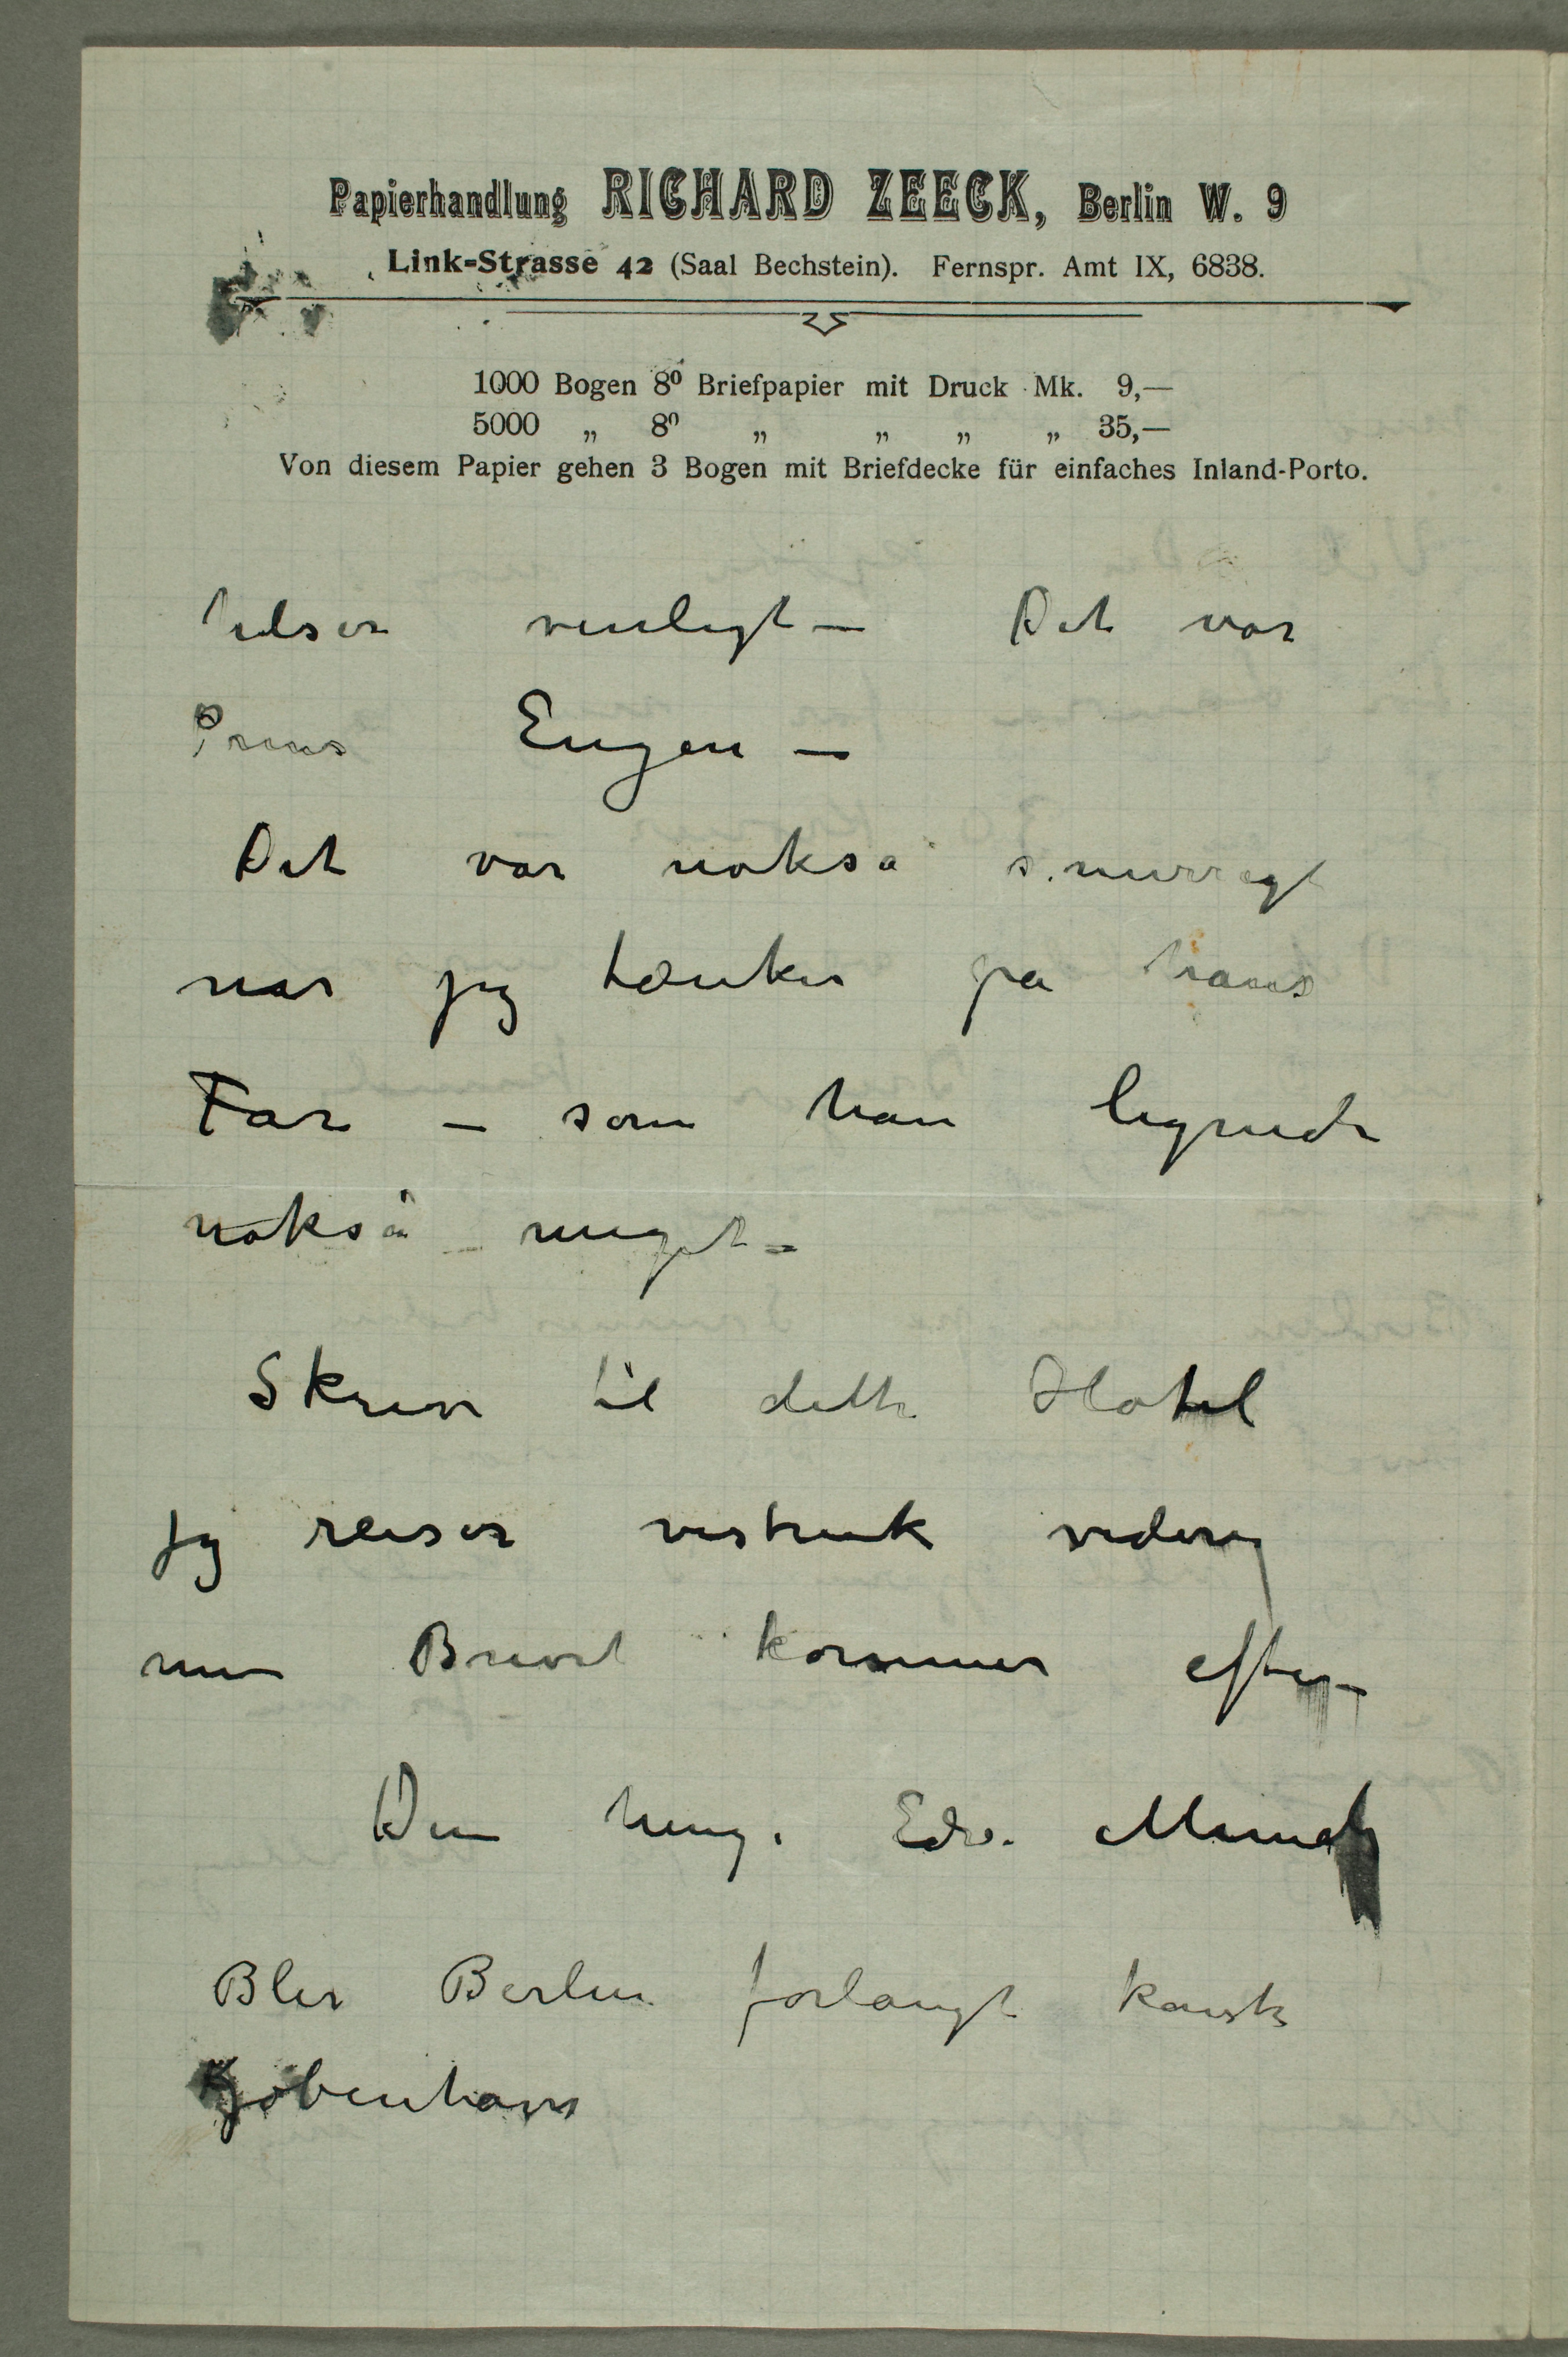 Papierhandlung RICHARD ZEECK, Berlin W. 9
Link-Strasse 42 (Saal Bechstein). Fernspr. Amt IX, 6838.
1000 Bogen 8⁰ Briefpapier mit Druck Mk. 9,—
5000 „ 8⁰ „ „ „ „ 35,—
Von diesem Papier gehen 3 Bogen mit Briefdecke für einfaches Inland-Porto.
hilser venligt – Det var
Prins Eugen –
Det var nokså snurrigt
når jeg tænker på hans
Far – som han lignede
nokså meget –
Skriv til dette Hotel
Jeg reiser vistnok videre
men Brevet kommer efter –
Din heng. Edv. Munch
Blir Berlin forlangt kanske
Kjøbenhavn